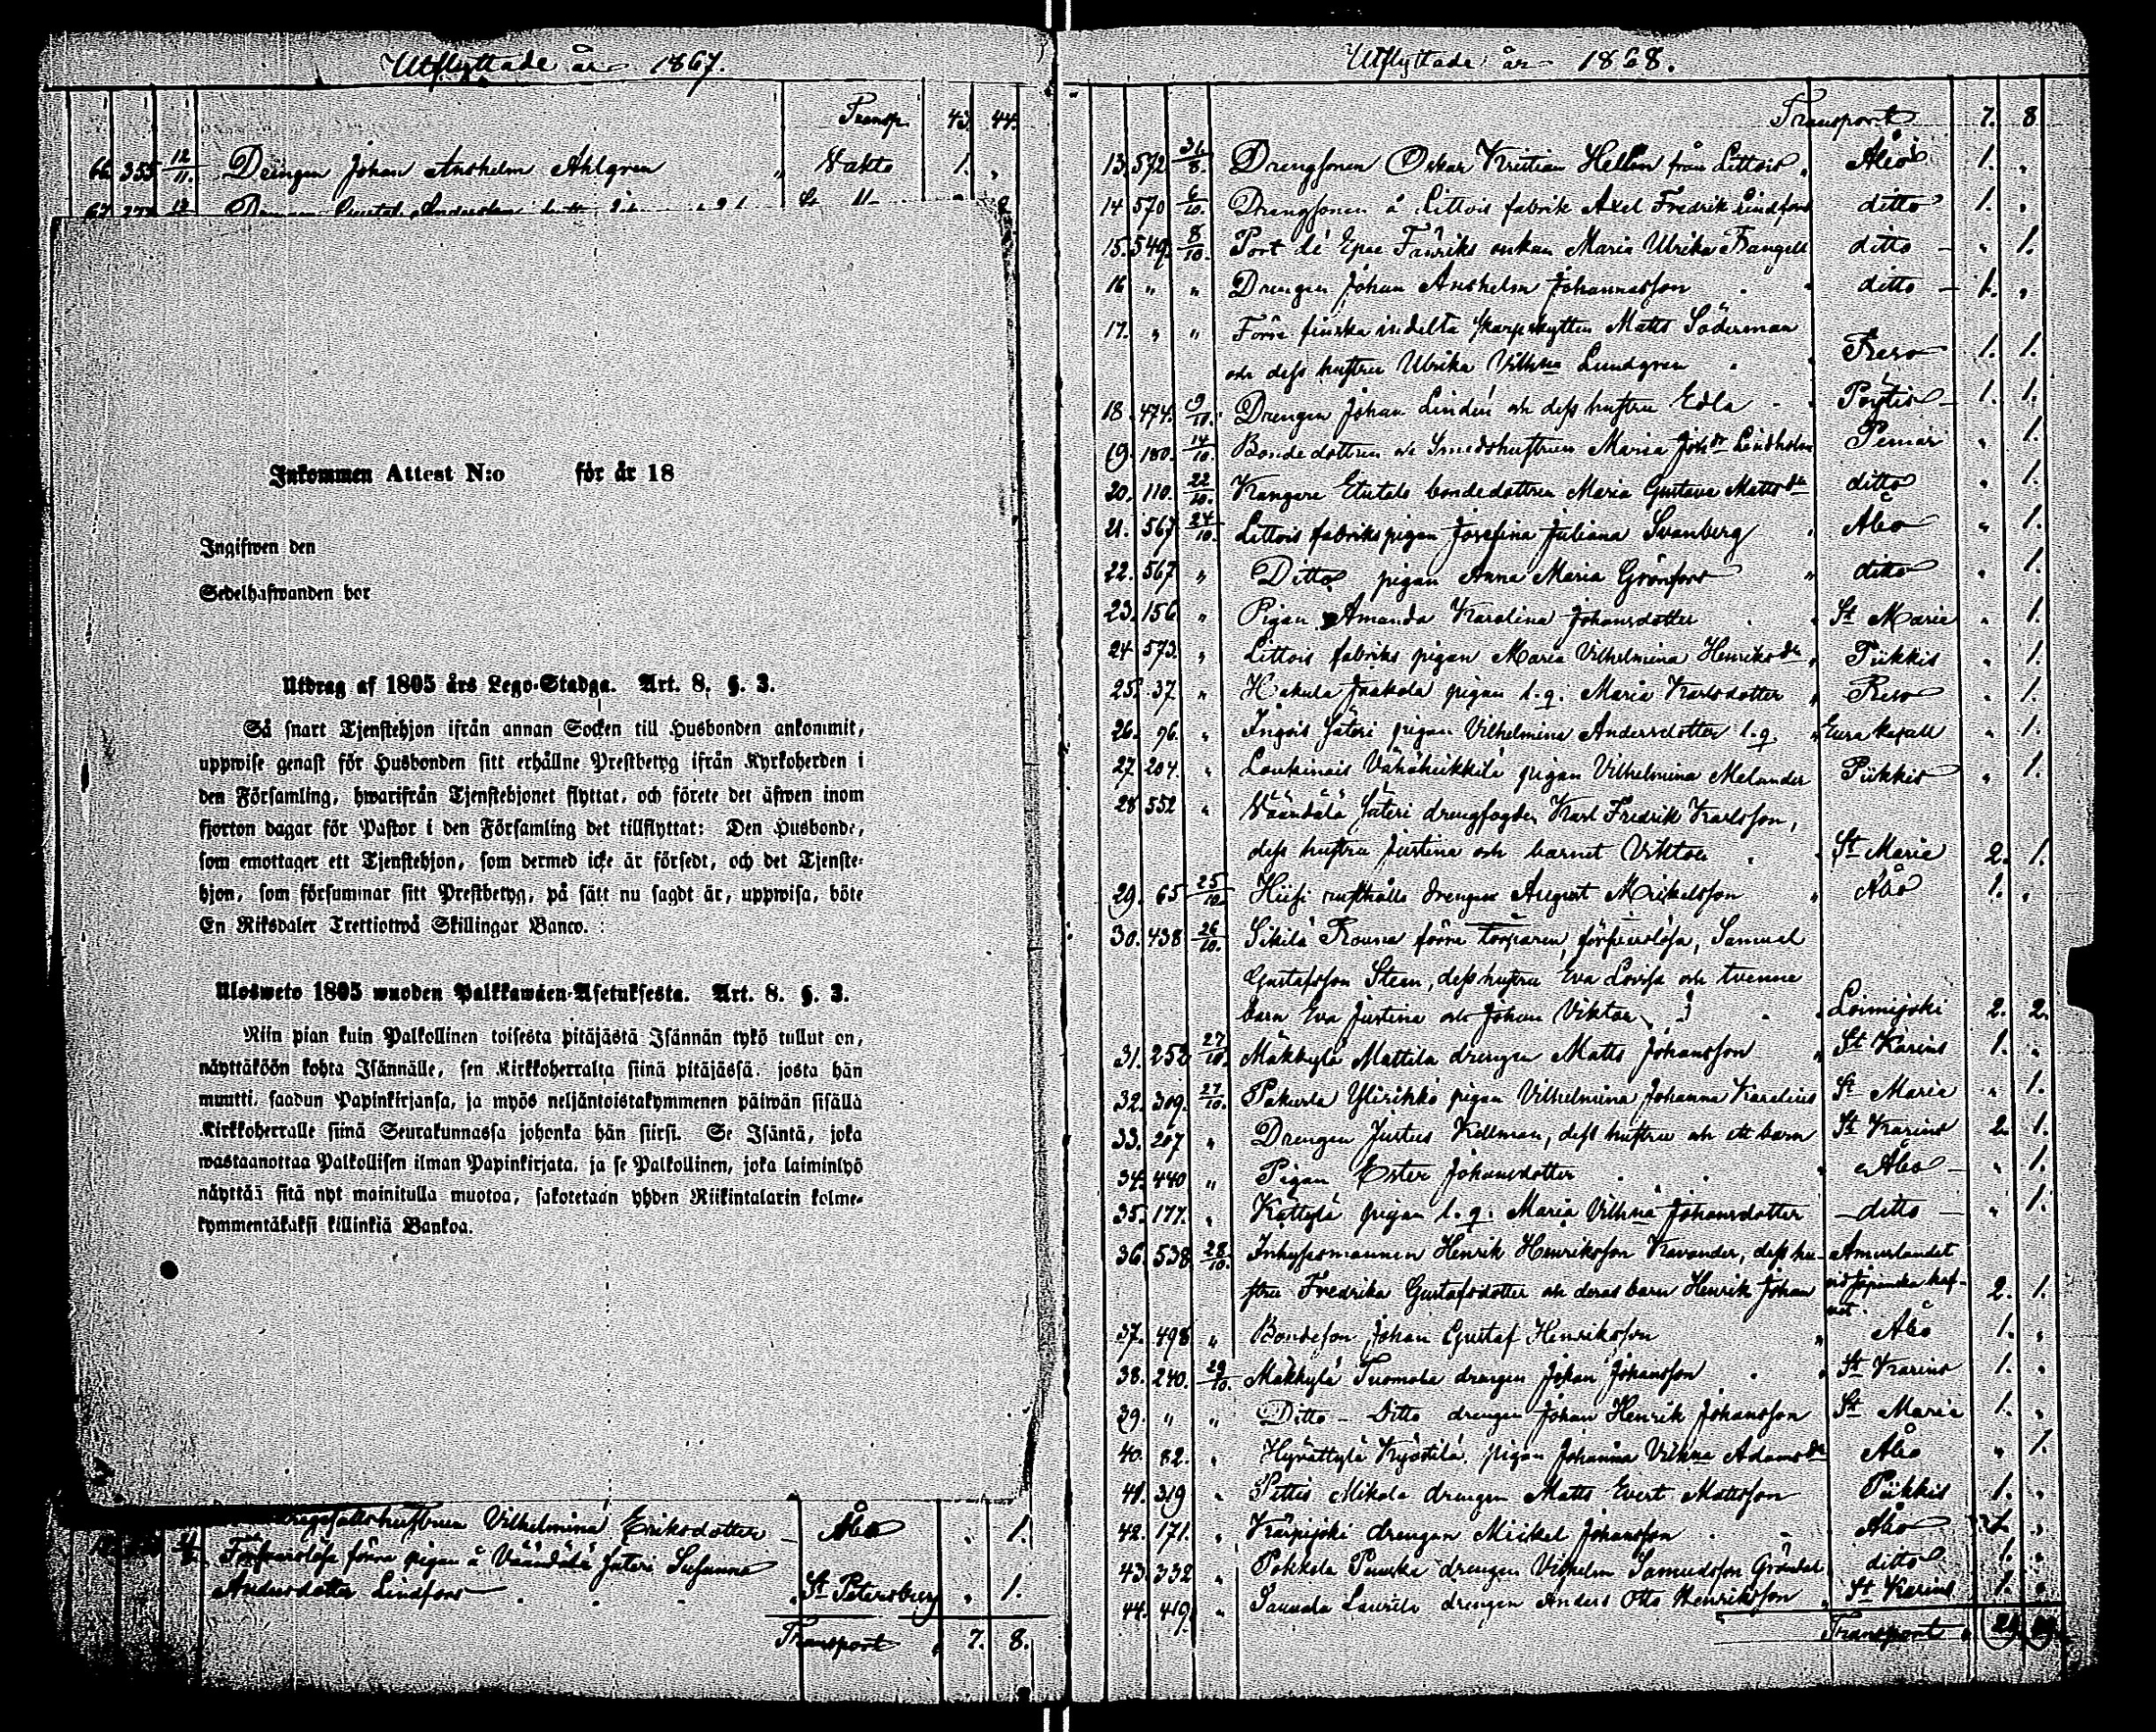 Utflyttade år 1867.
Transp. 43. 44.
66. 355 12/11. Drängen Johan Anshelm Ahlgren " Vakto 1. "
67.
Inkommen Attest N:o för år 18
Ingifwen den
Sedelhafwanden bor
Utdrag af 1805 års Lego-Stadga. Art. 8. §. 3.
Så snart Tjenstehjon ifrån annan Socken till Husbonden ankommit,
uppwise genast för Husbonden sitt erhållne Prestbetyg ifrån Kyrkoherden i
den Församling, hwarifrån Tjenstehjonet flyttat, och förete det äfwen inom
fjorton dagar för Pastor i den Församling det tillflyttat: Den Husbonde,
som emottager ett Tjenstehjon, som dermed icke är försedt, och det Tjenste-
hjon, som försummar sitt Prestbetyg, på sätt nu sagdt är, uppwisa, böte
En Riksdaler Trettiotwå Skillingar Banco.
Uloswето 1805 wuoden Palkkawäen-Asetuksesta. Art. 8. §. 3.
Niin pian kuin Palkollinen toisesta pitäjästä Isännän tykö tullut on,
näyttäköön kohta Isännälle, sen Kirkkoherralta siinä pitäjässä, josta hän
muutti, saadun Papinkirjansa, ja myös neljäntoistakymmenen päiwän sisällä
Kirkkoherralle siinä Seurakunnassa johonka hän siirsi. Se Isäntä, joka
wastaanottaa Palkollisen ilman Papinkirjata, ja se Palkollinen, joka laiminlyö
näyttää sitä nyt mainitulla muotoa, sakotetaan yhden Riikintalarin kolme-
kymmentäkaksi killinkiä Bankoa.
Vilhelmina Eriksdotter Åbo " 1.
Försvarslösa förra pigan å Väändälä Säteri Susanna
Andersdotter Lindfors " St Petersburg " 1.
Transport " 7. 8.
Utflyttade år 1868.
Transport 7. 8
13. 572 8. Drengsonen Oskar Kristian Hellen från Littois " Åbo 1. "
14 570 6/10. Drengsonen å Littois fabrik Axel Fredrik Lindfors ditto 1. "
15. 549. 8/10. Port de Epee Fänriks enkan Maria Ulrika Frangell ditto " 1.
16 " " Drengen Johan Anshelm Johannesson ditto 1. "
17. " " Förre finska indelta skarpskytten Matts Söderman
och dess hustru Ulrika Vilhna Lundgren Reso 1. 1.
18. 474. 9/10. Drengen Johan Lindén och dess hustru Edla Pöytis 1. 1.
19. 180. 14/10. Bondedottren och Smedshustrun Maria Johdr Lindholm Pemar " 1.
20. 110. 22/10. Kangare Etutalo bondedottren Maria Gustava Mattsdr ditto " 1.
21. 567 24/10. Littois fabrikspigan Josefina Juliana Svanberg Åbo " 1.
22. 567 " Ditto pigan Anna Maria Grönfors " ditto " 1.
23. 156. " Pigan Amanda Karolina Johansdotter St Marie " 1.
24 573. " Littois fabriks pigan Maria Vilhelmina Henriksdr " Piikkis " 1.
25. 37 " Hakula Jaakola pigan l.q. Maria Karlsdotter " Reso " 1.
26. 96. " Ingois Säteri pigan Vilhelmina Andersdotter l.q. " Eura kapell " 1.
27. 204. " Loukinais Vähäheikkilä pigan Vilhelmina Melander Piikkis " 1.
28 552 " Väändälä Säteri drengfogden Karl Fredrik Karlsson,
dess hustru Justina och barnet Viktor St Marie 2. 1.
29. 65 25/10 Hiisi rusthålls drengen August Mickelsson " Åbo 1. "
30. 438 26/10. Sikilä Rouna förre torparen, försvarslösa, Samuel
Gustafsson Steen, dess hustru Eva Lovisa och tvenne
barn Eva Justina och Johan Viktor Loimijoki 2. 2.
31. 252 27/10. Mäkkylä Mattila drengen Matts Johansson " St Karins 1. "
32. 309. 27/10. Pakurla Ylirikko pigan Vilhelmina Johanna Karelius St Maria " 1.
33. 207 " Drengen Justus Kellman, dess hustru och ett barn St Karins 2. 1.
34. 440 " Pigan Ester Johansdotter " Åbo " 1.
35. 177. " Kättylä pigan l.q. Maria Vilhna Johansdotter ditto " 1.
36. 538. 28/10. Inhysesmannen Henrik Henriksson Kavander, dess hu- Amurlandet
stru Fredrika Gustafsdotter och deras barn Henrik Johan vid Japanska haf-
vet. 2. 1.
37. 498 " Bondeson Johan Gustaf Henriksson " Åbo 1. "
38. 240. 29/10. Mäkkylä Tuomola drengen Johan Johansson " St Karins 1. "
39. " " Ditto - Ditto drengen Johan Henrik Johansson St Marie 1. "
40. 82. " Hyrättylä Kyöstilä pigan Johanna Vilhna Adamsdr Åbo " 1.
41. 319 " Pettis Mikola drengen Matts Evert Mattsson Piikkis 1. "
42. 171. " Karpijoki drengen Mickel Johansson Åbo 1. "
43. 332 " Pohkola Punska drengen Vilhelm Samuelsson ditto 1. "
44. 419. " Saurala Laurila drengen Anders Otto Henriksson " St Karins 1. "
Transport